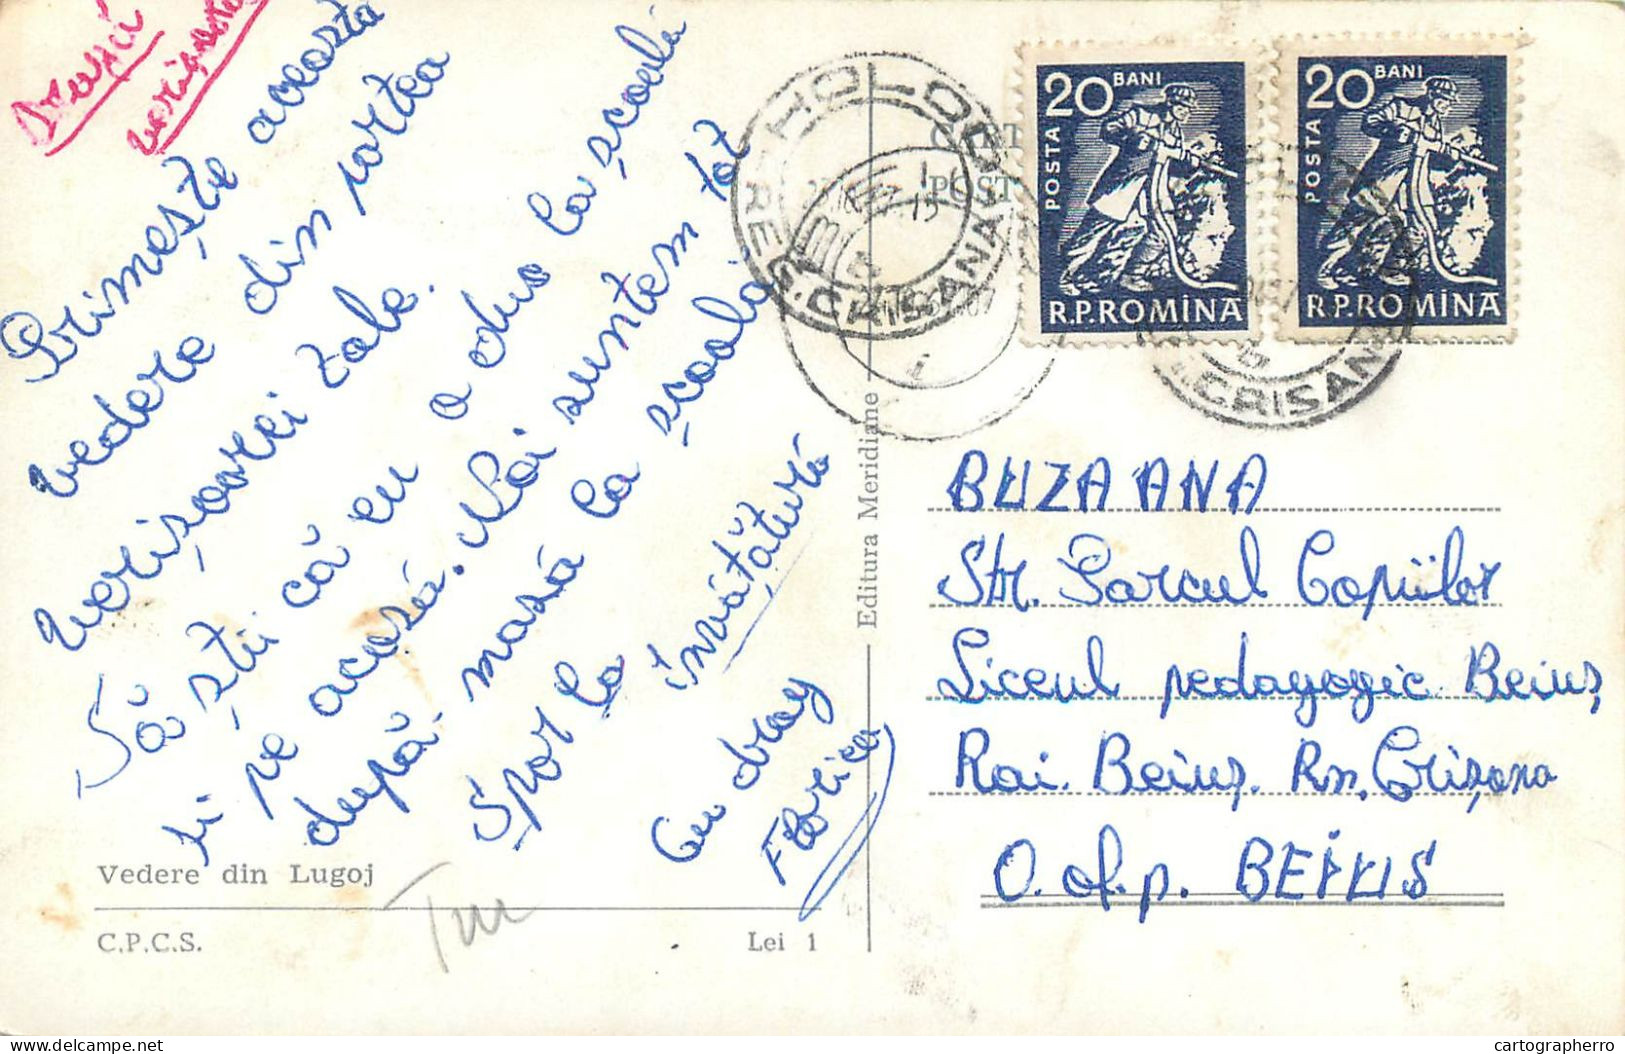 Dragă
verișoară
Primește această
vedere din partea
verișoarei tale.
Să știi că eu a dus la școală
și pe acasă. Noi suntem tot
după masă la școală
Spor la învățătură
Cu drag
Florica
Vedere din Lugoj
C.P.C.S.
Lei 1
Editura Meridiane
HOLOD
REG. CRISANA
POST
20 BANI
POSTA
R.P.ROMÎNA
20 BANI
POSTA
R.P.ROMÎNA
CRISANA
BUZA ANA
Str. Parcul Copiilor
Liceul pedagogic Beiuș
Rai. Beiuș. Rn. Crișana
O. of. p. BEIUS
cartographerro
delcampe.net